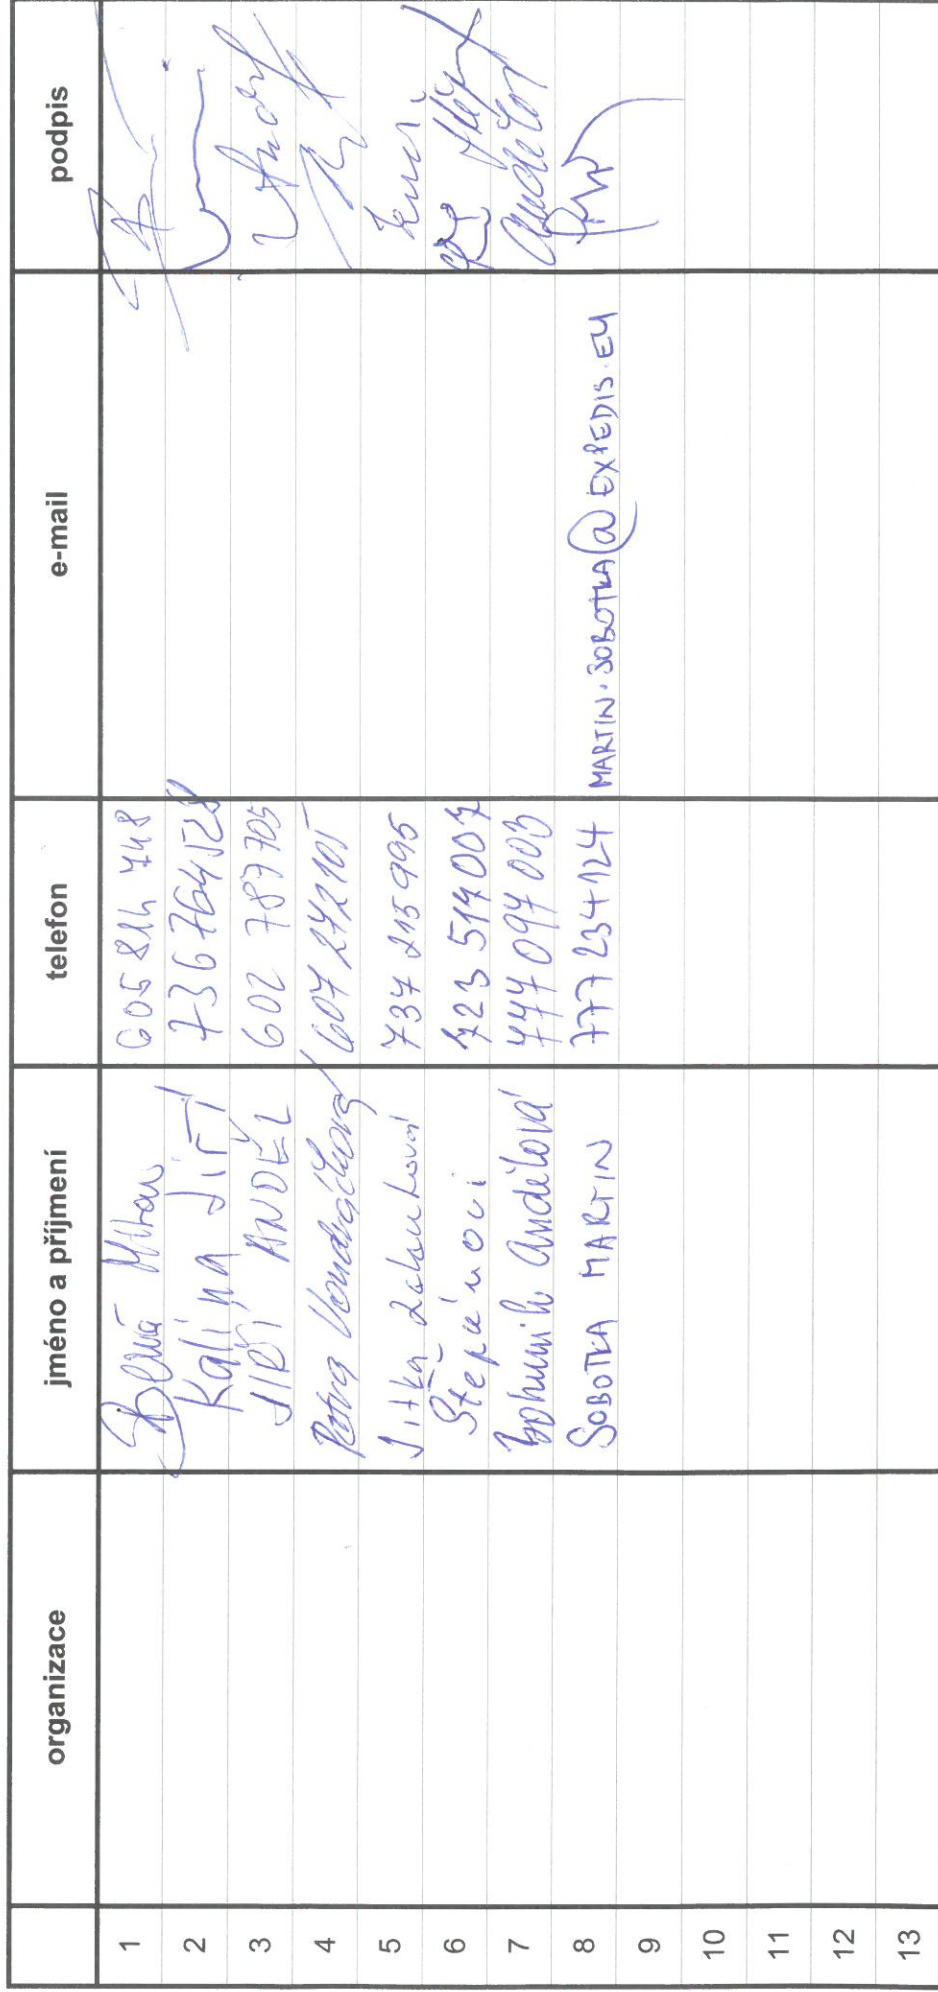 organizace jméno a příjmení telefon e-mail podpis
1 605 814 748
2 Kalina Jiří 736 764 528
3 JIŘÍ ANDĚL 602 787 705
4 Petra Vondráčková 607 272 105
5 Jitka 737 215 995
6 Štěpánovi 723 517 007
7 Bohumila Andělová 777 097 003
8 SOBOTKA MARTIN 777 234 124 MARTIN.SOBOTKA@EXPEDIS.EU
9
10
11
12
13